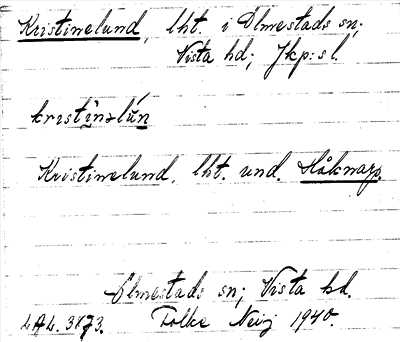 Kristinelund, lht. i Ölmestads sn;
Vista hd; Jkp:s l.
kristìnəlún
Kristinelund, lht. und. Håknarp.
Ölmestads sn; Vista hd.
Folke Neij 1940.